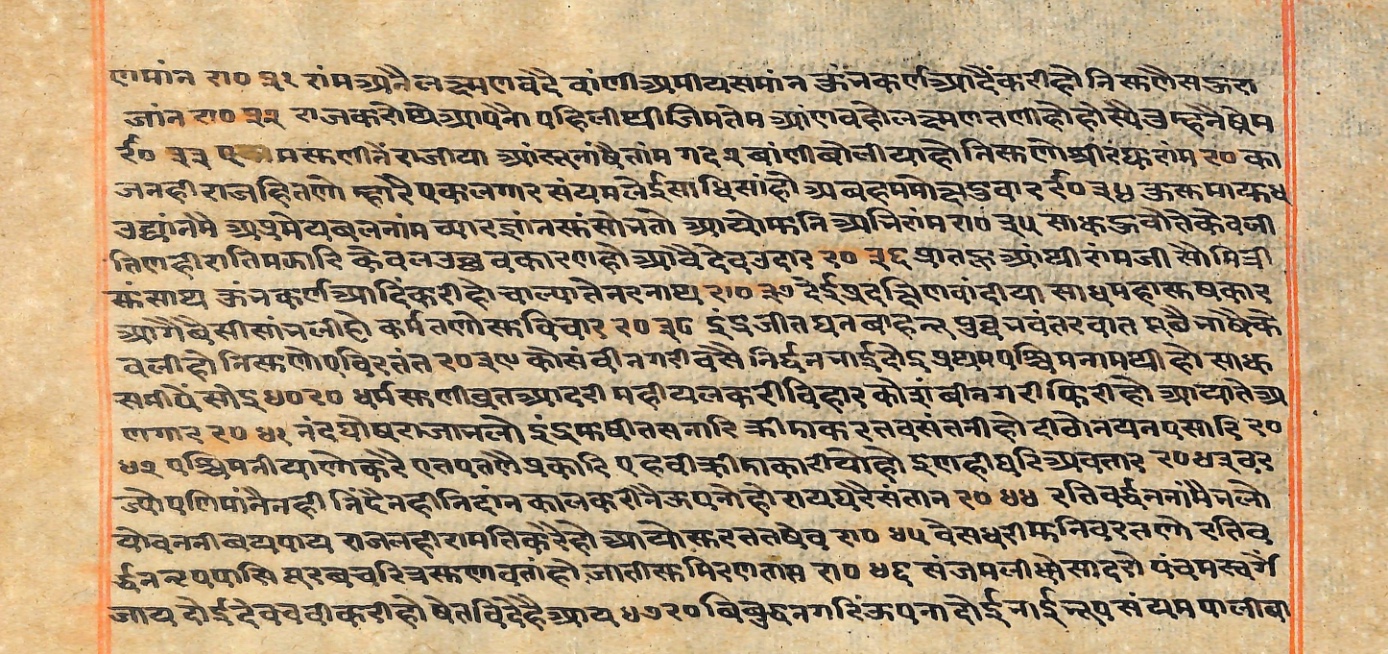 णमांन रा० ३१ रांमअनैलक्ष्मणवदै वांणीअमीयसमांन कुंनकर्णआदैंकरीहो निसुणैसऊरा
जांन रा० ३२ राजकरोथेआपनौ पहिलीथीजिमतेम आंणवहोलक्ष्मणतणीहोहोस्यैतुम्हनैषेम
र्रा० ३३ ए मसुणीनें राजीया आंसूनांषैतांम गद२ वांणीबोलीयाहो निसुणोश्रीरंघुरांम रा० का
जनहीराजहितणो म्हारै एकलगार संयमलेईसाधिसांहो अबहममोहनुवार र्रा० ३४ कुसुमायुध
उद्यांनमै अप्रमेयबलनांम च्यारज्ञांनसुंसोनतो आयोमुनिअनिरांम रा० ३५ साधऊवौतेकेवली
तिणहीरातिमझारि केवलउछवकारणहो आवैदेवउदार रा० ३६ प्रातऊआंथीरांमजी सौमित्री
सुंसाथ कुंनकर्णआदिंकरीहो चाल्यातेनरनाथ रा० ३७ देईप्रदक्षिणवांदीया साधुमहासुषकार
आगैबैसीसांनलीहो कर्मतणोसुविचार रा० ३८ इंद्रजीतघनबाहनू पुछनवंतरवात सबैनाषैके
वलीहो निसुणोएविरतंत रा० ३९ कोसंबीनगरीवसै निर्द्धननाईदोइ प्रथमपश्चिमनामथीहो साध
समीपें सोइ ४० रा० धर्मसुणीव्रतआदरी महीयलकरीविहार कोशंबीनगरीफिरीहो आयातेअ
णगार रा० ४१ नंदघोषराजानलो इंद्रमुषीतसनारि क्रीडाकरतवसंतनीहो दीठोनयनपसारि रा०
४२ पश्चिमनीयाणोकरै एतपतणैप्रकारि एहवीक्रीडाकारीयोहो इणहीघरिअवतार रा० ४३ वर
ज्योपणिमांनैनही निंदेनहीनिदांन कालकरीनैऊपनोहो रायघरैसंतान रा० ४४ रतिवर्द्धननांमैनलो
योवननीवयपाय राजलहीरामतिकरैहो आयोसुरततषेव रा० ४५ वेसधरीमुनिवरतणो रतिव
र्द्धननृपपासि सरबचरित्रसुणावतांहो जातीसुमिरणतास रा० ४६ संजमलीधोसादरो पंचमस्वर्गे
जाय दोईदेवचवीकरीहो षेतविदेहैआय ४७ रा० विबुद्धनगरिंऊपना दोईनाईनृप संयमपालीबा